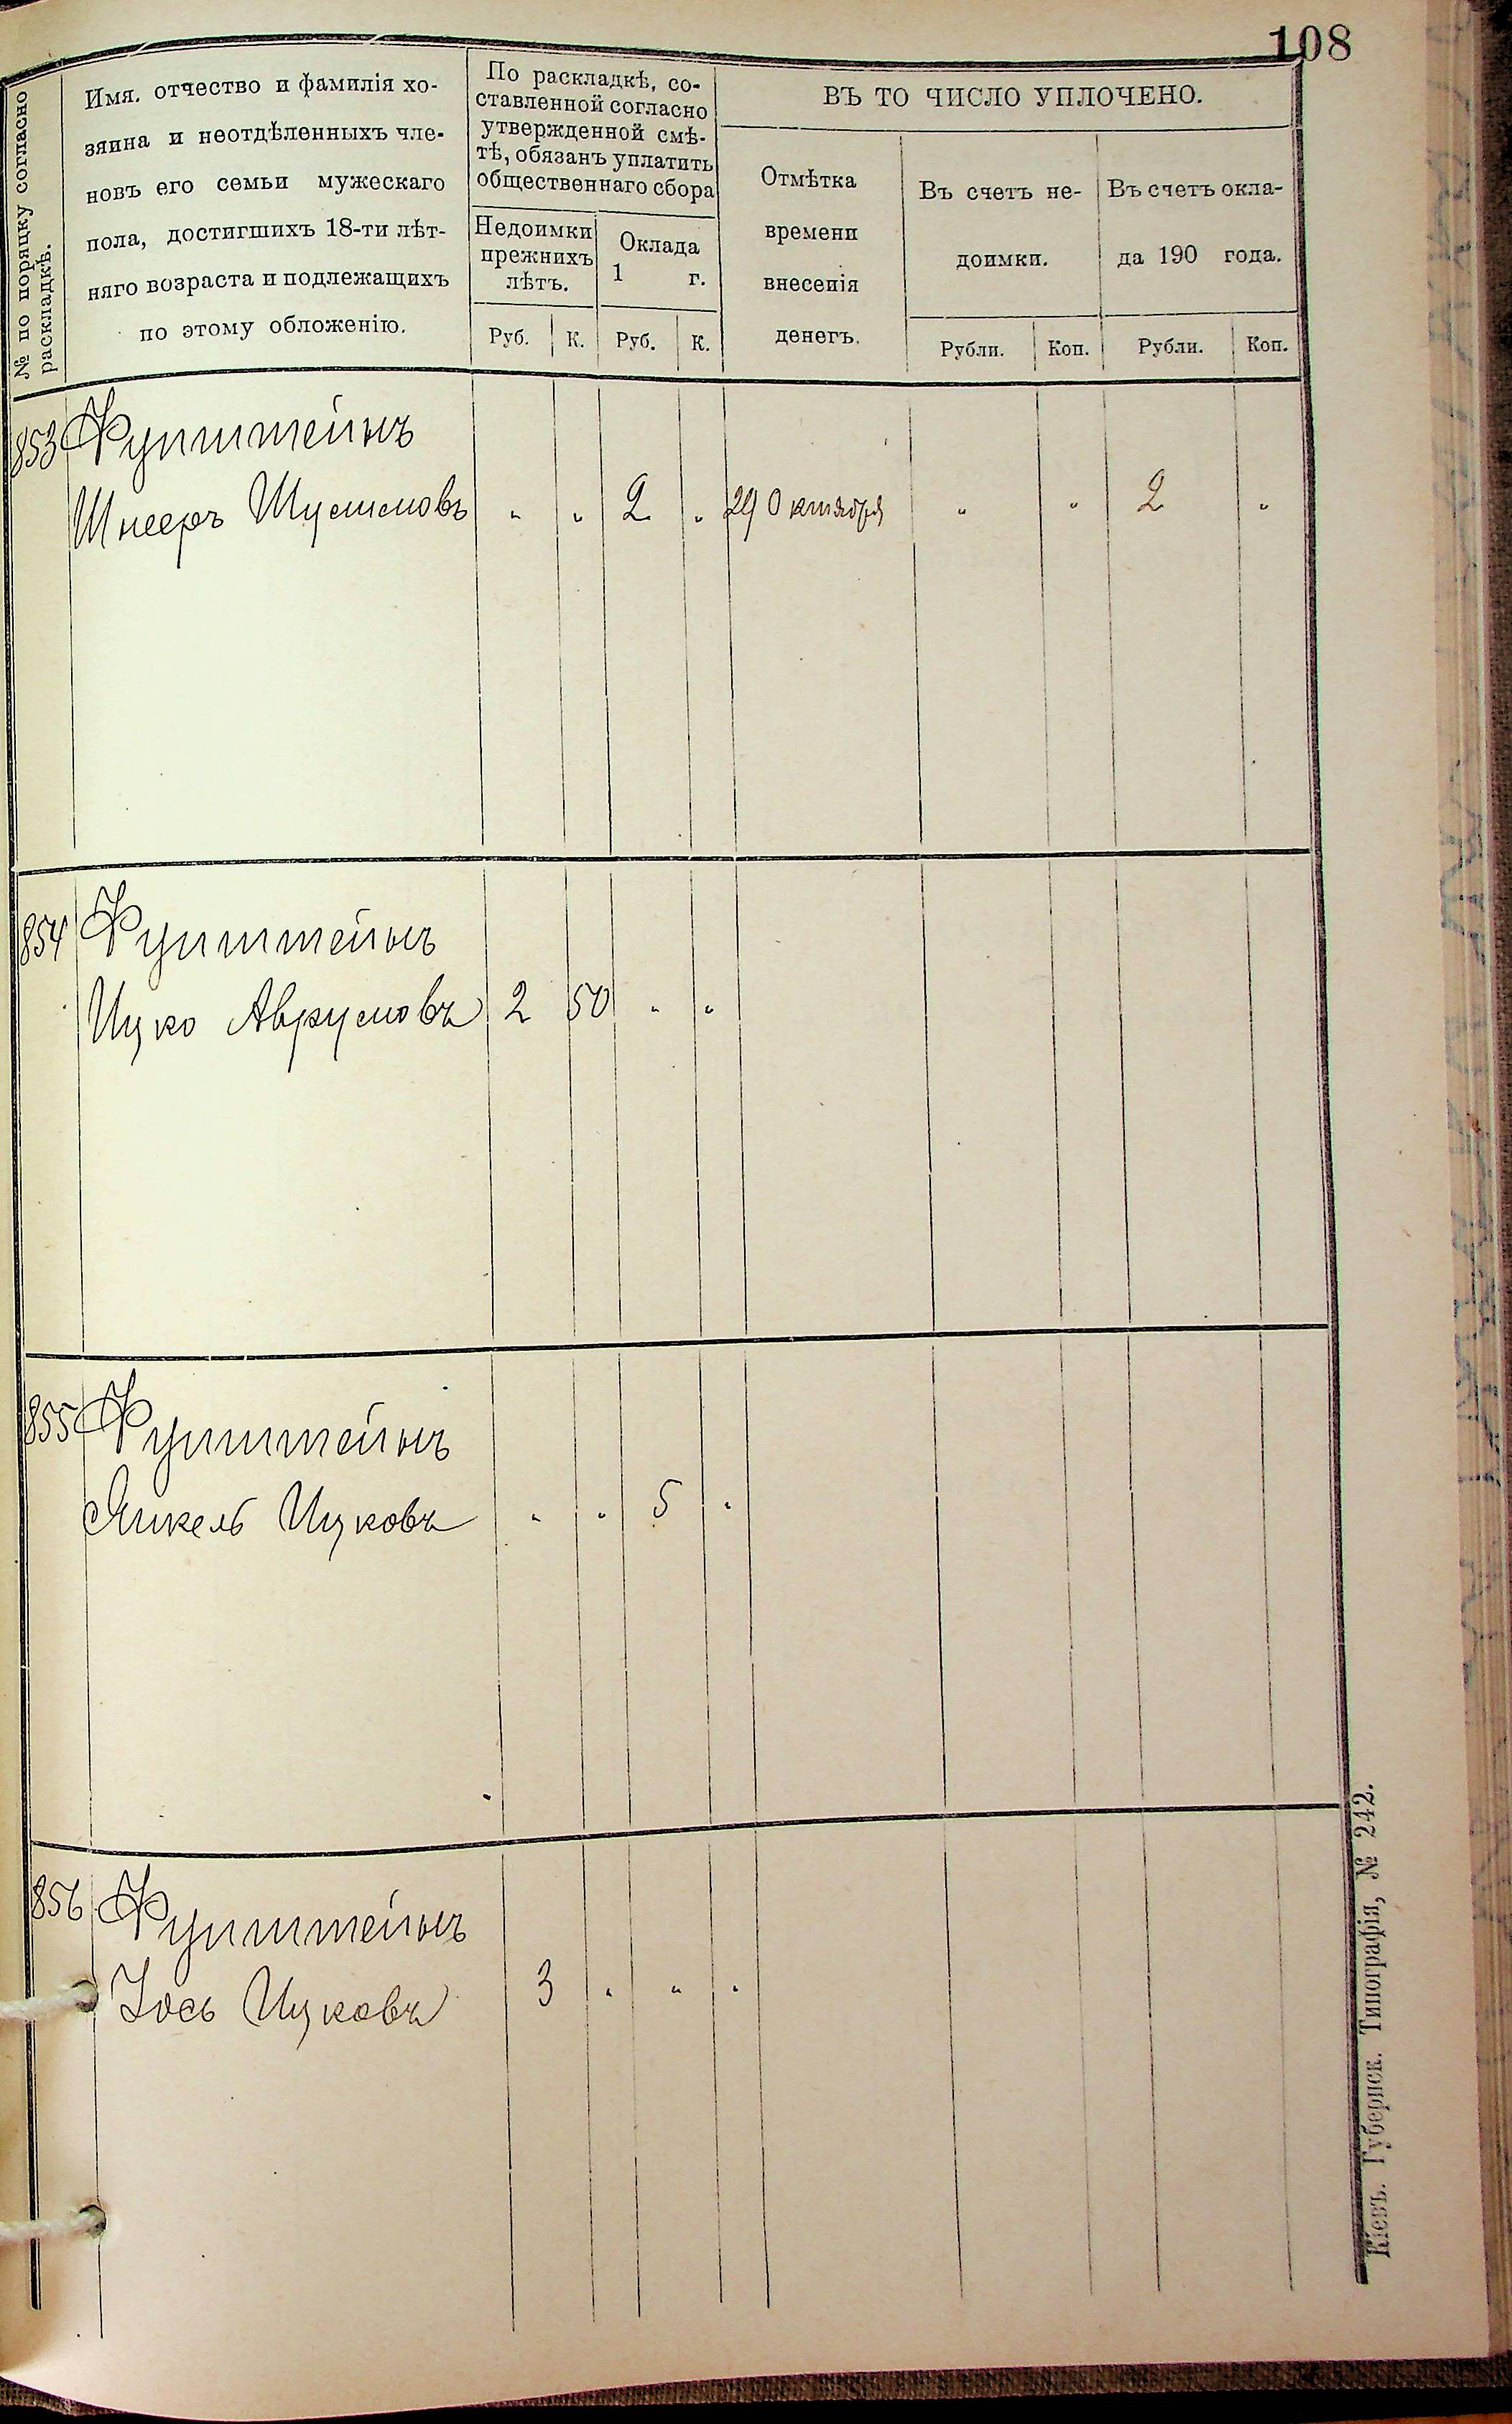 108
№ по порядку согласно
раскладкѣ.
Имя, отчество и фамилія хо-
зяина и неотдѣленныхъ чле-
новъ его семьи мужескаго
пола, достигшихъ 18-ти лѣт-
няго возраста и подлежащихъ
по этому обложенію.
По раскладкѣ, со-
ставленной согласно
утвержденной смѣ-
тѣ, обязанъ уплатить
общественнаго сбора
Недоимки
прежнихъ
лѣтъ.
Оклада
1 г.
Руб. К. Руб. К.
ВЪ ТО ЧИСЛО УПЛОЧЕНО.
Отмѣтка
времени
внесенія
денегъ.
Въ счетъ не-
доимки.
Въ счетъ окла-
да 190 года.
Рубли. Коп. Рубли. Коп.
853 Фупштейнъ
Шнееръ Шулимовъ " " 2 " 29 Октября " " 2 "
854 Фупштейнъ
Ицко Аврумовъ 2 50 " "
855 Фупштейнъ
Янкель Ицковъ " " 5 "
856 Фупштейнъ
Іось Ицковъ 3 " " "
Кіевъ. Губернск. Типографія, № 242.